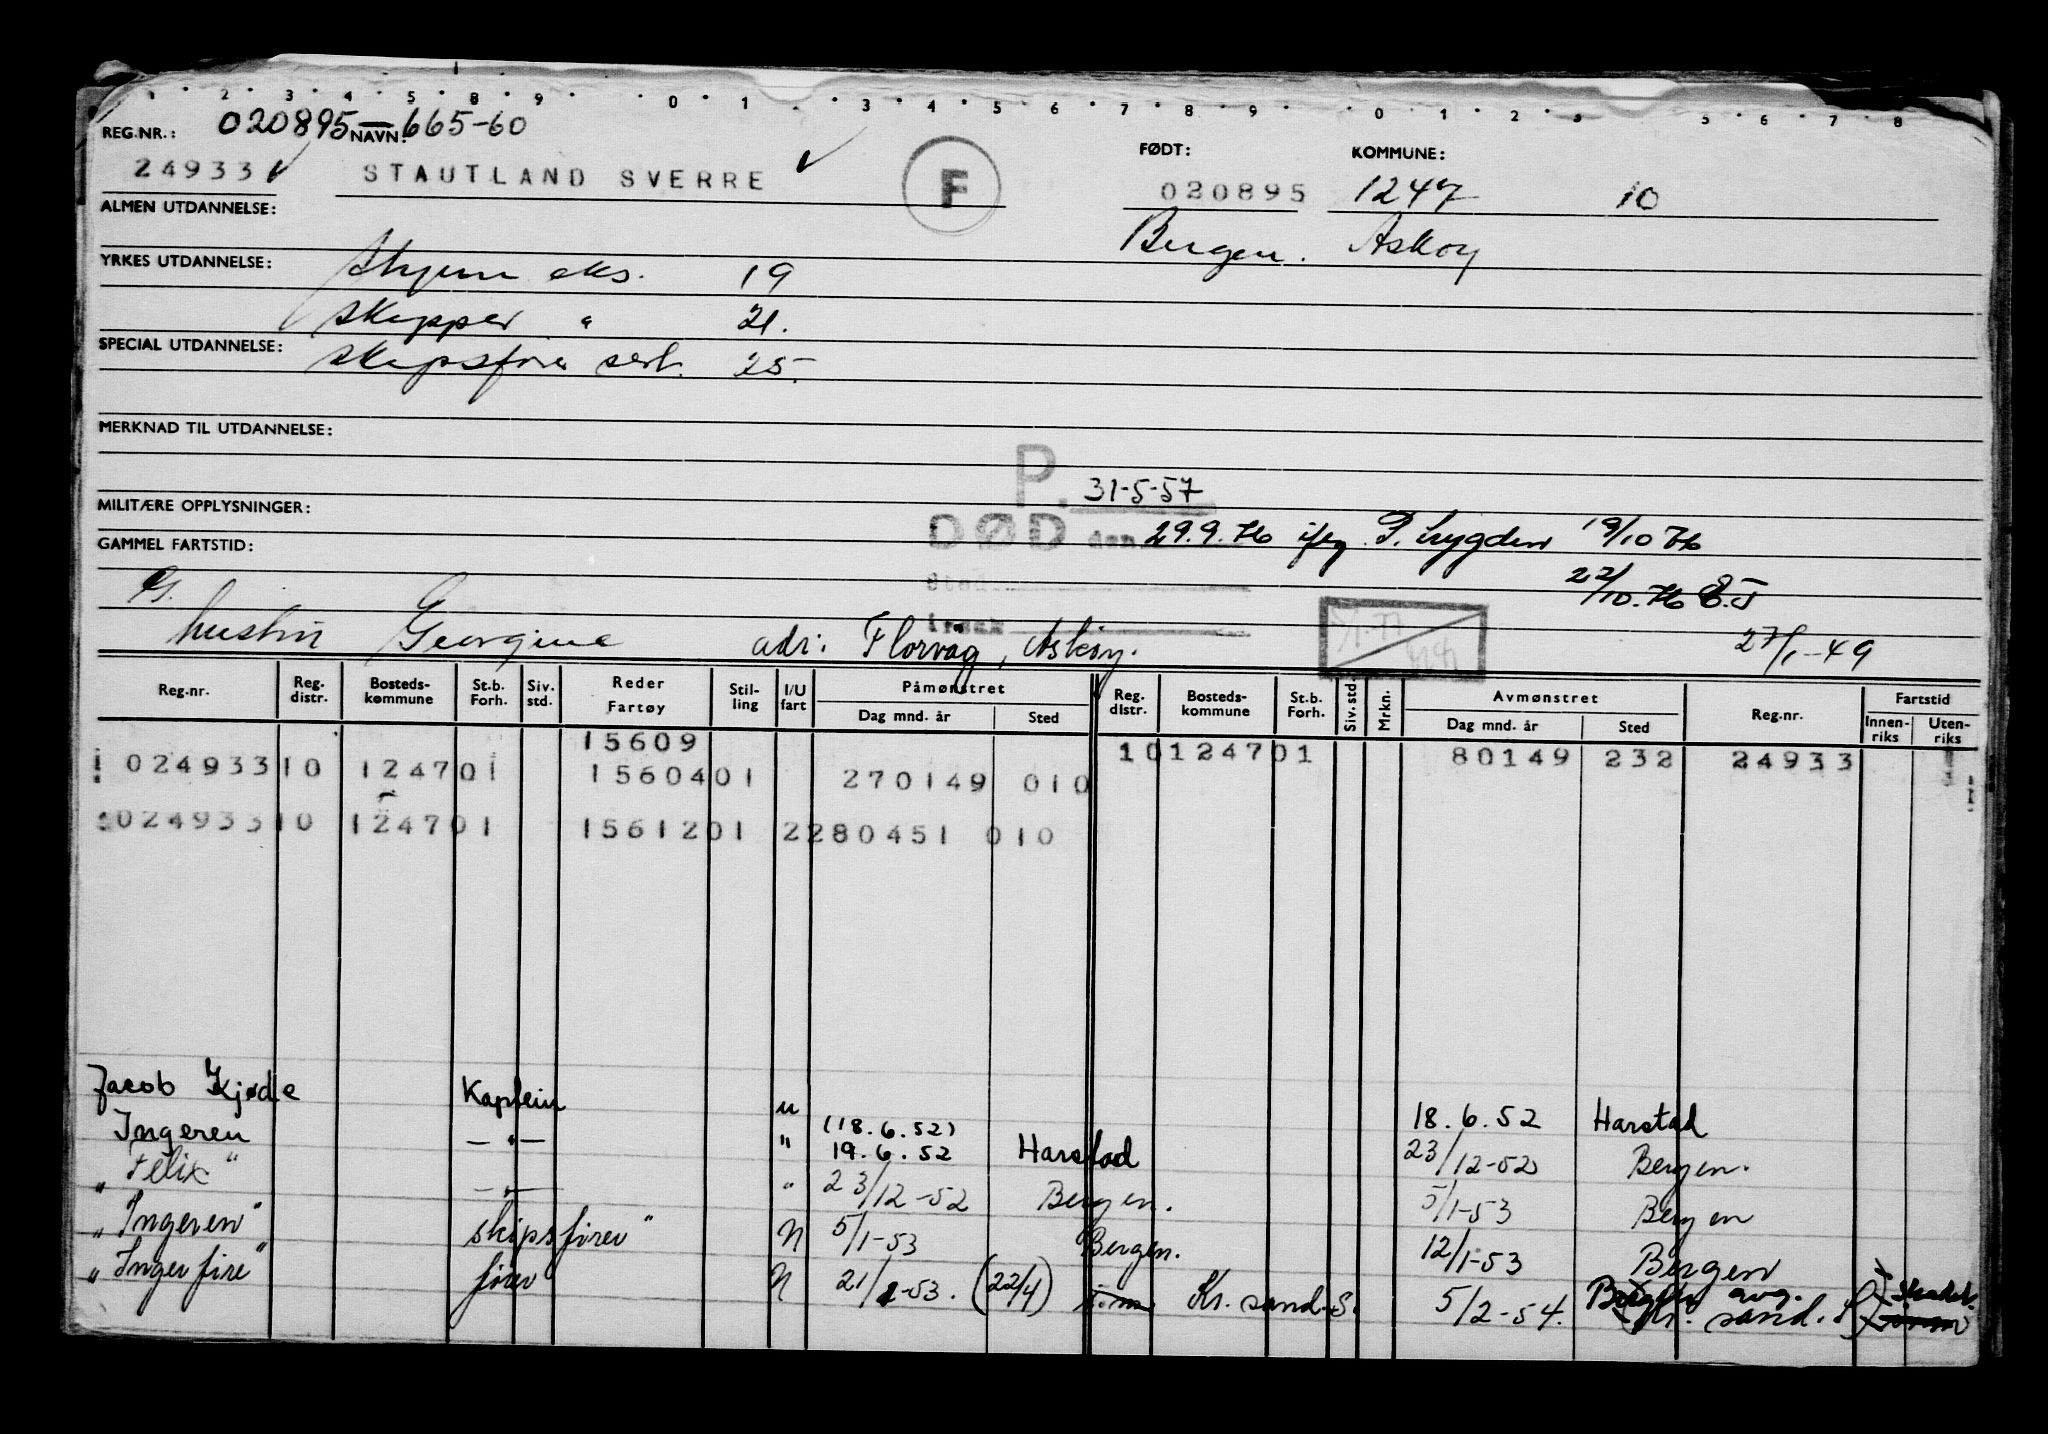 1 2 3 4 5 8 9 0 1 3 4 5 6 7 8 9 0 1 2 3 5 6 7 8
REG.NR.: 020895-665-60 NAVN: FØDT: KOMMUNE:
24933 STAUTLAND SVERRE F 020895 1247 10
ALMEN UTDANNELSE: Bergen. Askøy
YRKES UTDANNELSE: Styrm eks. 19
skipper " 21.
SPECIAL UTDANNELSE: skipsfører sert. 25.
MERKNAD TIL UTDANNELSE:
P. 31-5-57
MILITÆRE OPPLYSNINGER:
DØD den 29.9.76 iflg P. Lygden 19/10 76
GAMMEL FARTSTID:
Sted 22/10.76 E.J
G. hustru Georgine adr: Florvåg, Askøy. 27/1-49
årsak
Reg.nr. Reg. distr. Bosteds-kommune St.b. Forh. Siv. std. Reder Fartøy Stil-ling I/U fart Påmønstret Dag mnd. år Sted Reg. distr. Bosteds-kommune St.b. Forh. Siv. std. Mrkn. Avmønstret Dag mnd. år Sted Reg.nr. Fartstid Innen-riks Uten-riks
15609 10 1247 01 80149 232 24933
024933 10 1247 01 15604 01 270149 010
024933 10 1247 01 15612 01 2 280451 010
Jacob Kjøde Kaptein u 18.6.52 Harstad
(18.6.52)
Ingeren —"— " 19.6.52 Harstad 23/12-52 Bergen.
"Felix" —"— " 23/12-52 Bergen. 5/1-53 Bergen
"Ingeren" skipsfører" N 5/1-53 Bergen. 12/1-53 Bergen
"Inger fire" fører N 21/1-53. (22/1) Kr. sand.S. 5/2-54. Bergen avg.
Kr. sand. S